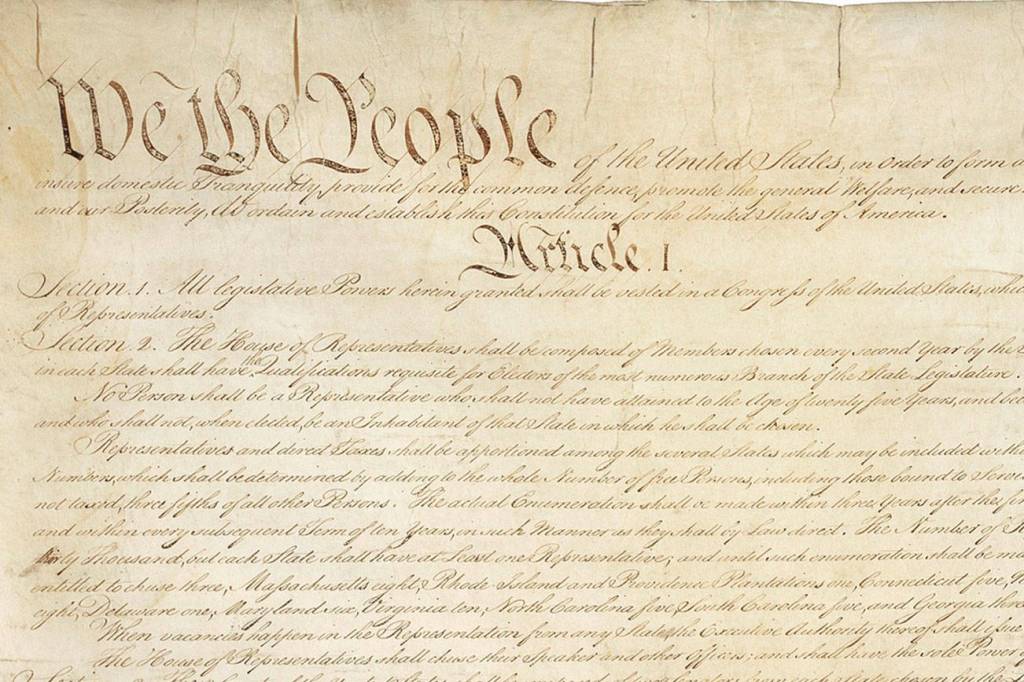 We the People of the United States, in order to form a
insure domestic Tranquility, provide for the common defence, promote the general Welfare, and secure
and our Posterity, do ordain and establish this Constitution for the United States of America.
Article. I.
Section. 1. All legislative Powers herein granted shall be vested in a Congress of the United States, which
of Representatives.
Section. 2. The House of Representatives shall be composed of Members chosen every second Year by the
in each State shall have the Qualifications requisite for Electors of the most numerous Branch of the State Legislature.
No Person shall be a Representative who shall not have attained to the Age of twenty five Years, and
and who shall not, when elected, be an Inhabitant of that State in which he shall be chosen.
Representatives and direct Taxes shall be apportioned among the several States which may be included
Numbers, which shall be determined by adding to the whole Number of free Persons, including those bound to
not taxed, three fifths of all other Persons. The actual Enumeration shall be made within three Years after the
and within every subsequent Term of ten Years, in such Manner as they shall by Law direct. The Number of
thirty Thousand, but each State shall have at Least one Representative; and until such enumeration shall be
entitled to chuse three, Massachusetts eight, Rhode-Island and Providence Plantations one, Connecticut five,
eight, Delaware one, Maryland six, Virginia ten, North Carolina five, South Carolina five, and Georgia three
When vacancies happen in the Representation from any State, the Executive Authority thereof shall issue
The House of Representatives shall chuse their Speaker and other Officers; and shall have the sole Power